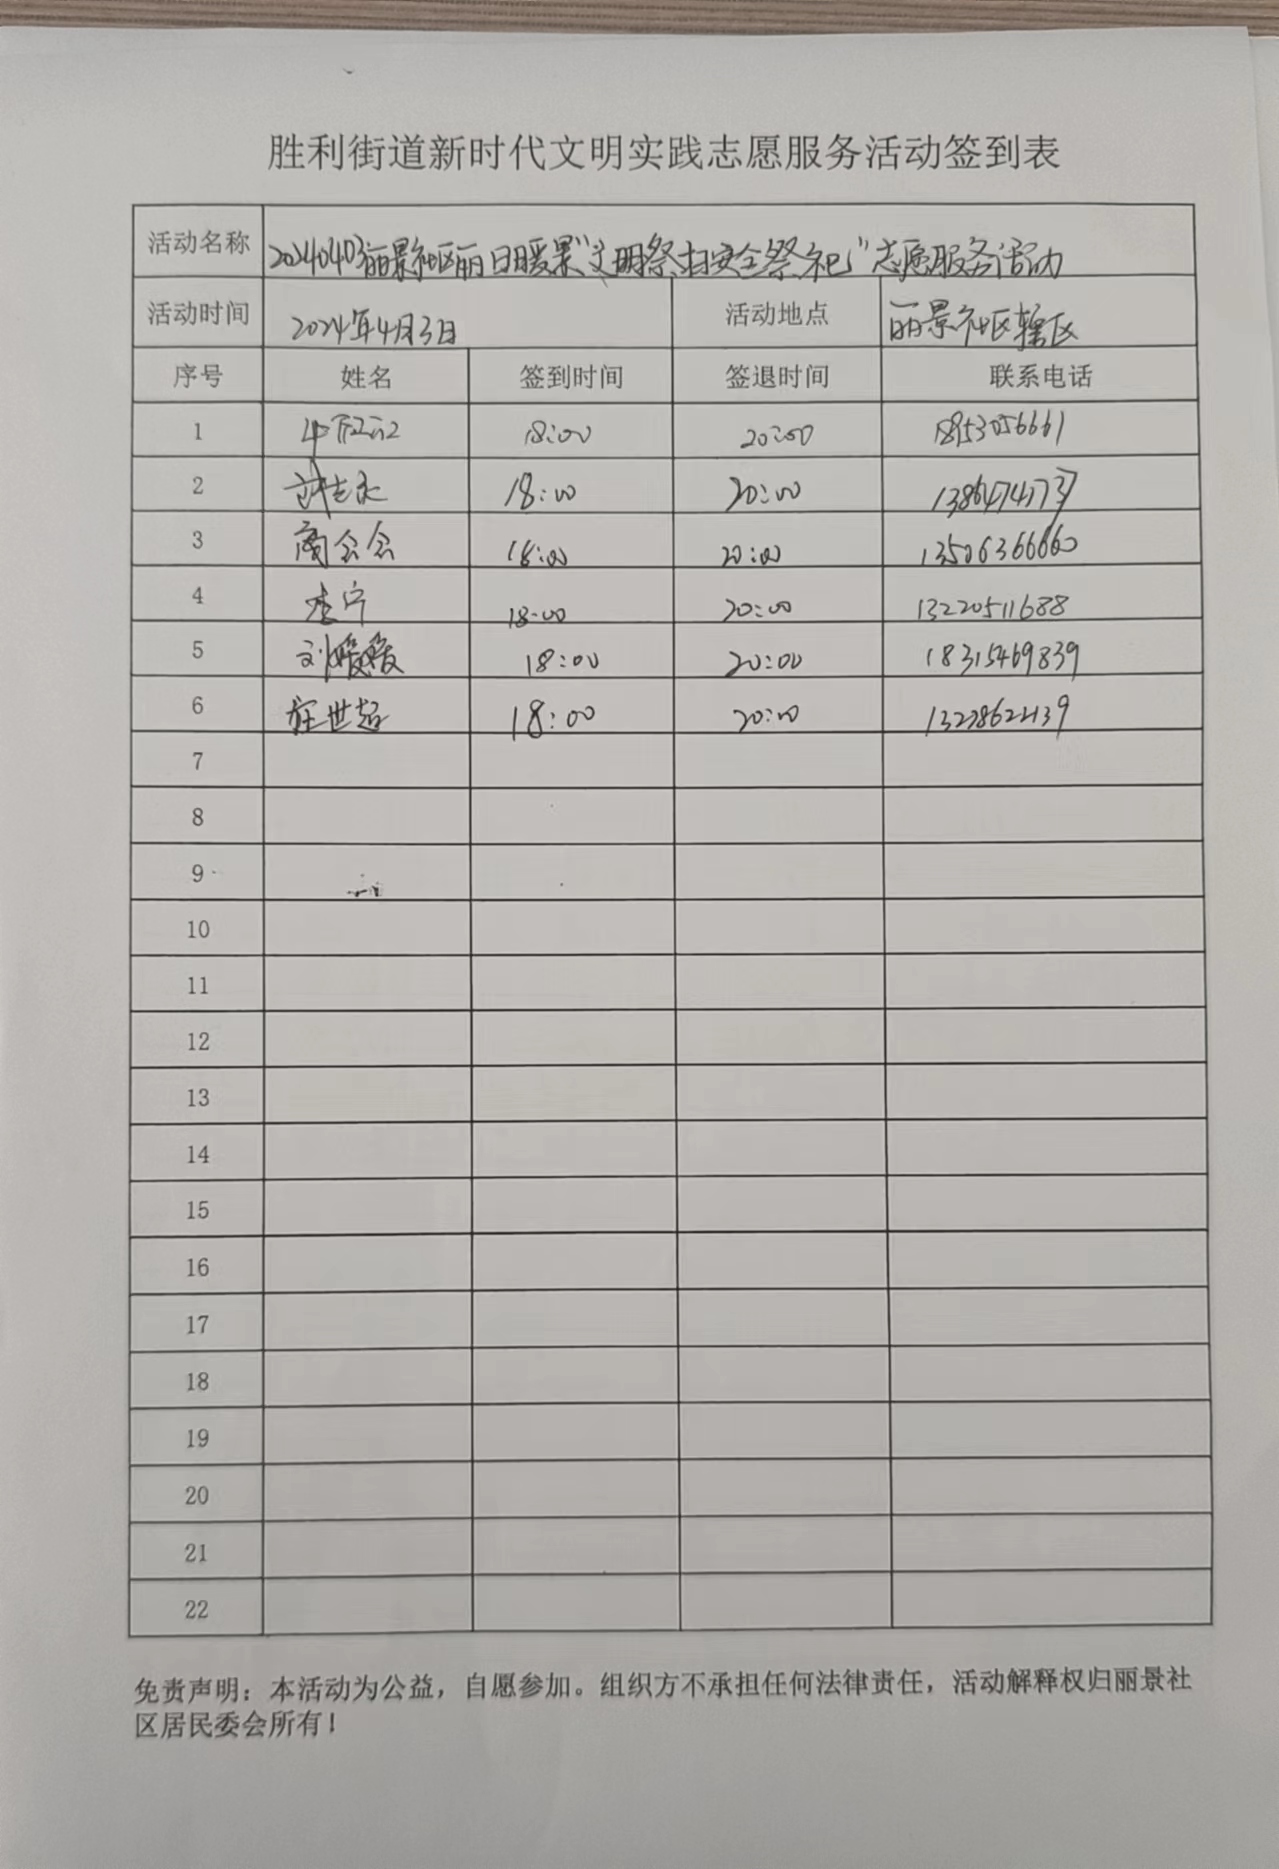 胜利街道新时代文明实践志愿服务活动签到表
活动名称 20240403丽景社区丽日暖景"文明祭扫安全祭祀"志愿服务活动
活动时间 2024年4月3日 活动地点 丽景社区辖区
序号 姓名 签到时间 签退时间 联系电话
1 18:00 20:00 18953056661
2 18:00 20:00
3 商会会 18:00 20:00 13506366660
4 李宁 18:00 20:00 13220511688
5 刘媛媛 18:00 20:00 18315469839
6 世超 18:00 20:00
7
8
9
10
11
12
13
14
15
16
17
18
19
20
21
22
免责声明：本活动为公益，自愿参加。组织方不承担任何法律责任，活动解释权归丽景社
区居民委会所有！